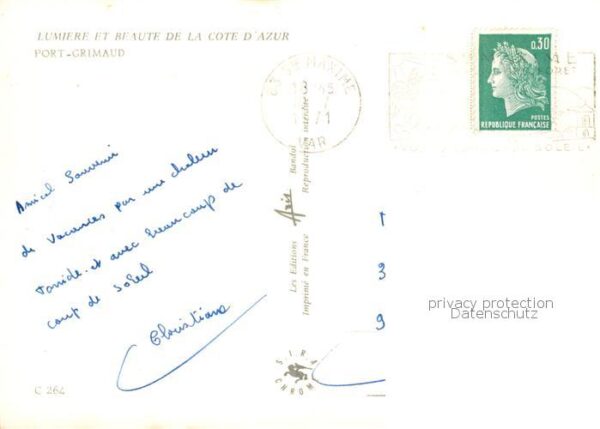 LUMIERE ET BEAUTE DE LA COTE D'AZUR
PORT-GRIMAUD
Amical Souvenir
de vacances par une chaleur
torride. et avec beaucoup de
coup de soleil
Christiane
C 264
Les Editions Aris Bandol
Imprimé en France Reproduction interdite
SIRA
CHROME
STE MAXIME
VAR
0,30
POSTES
REPUBLIQUE FRANÇAISE
SOLEIL
1
3
9
privacy protection
Datenschutz